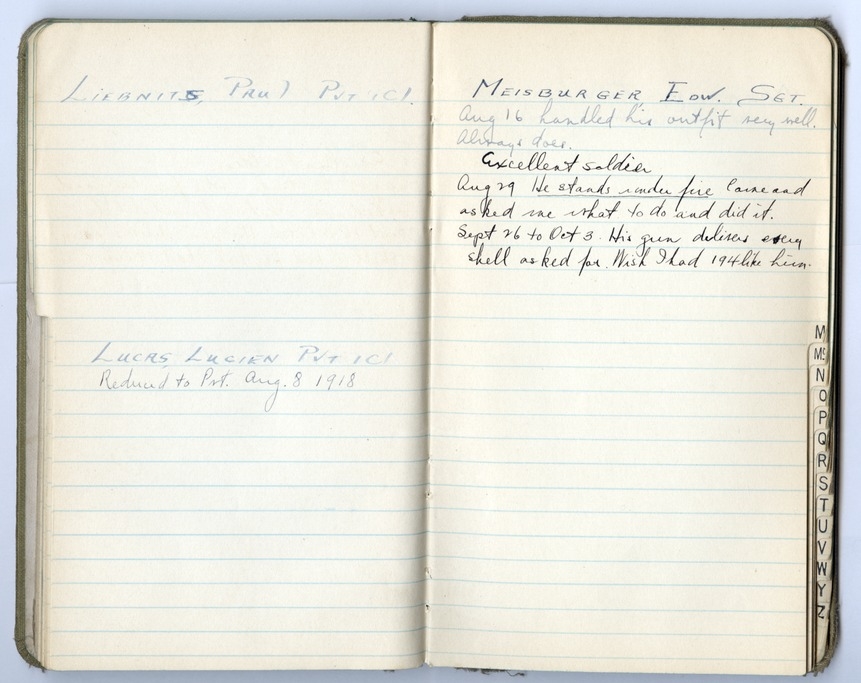 LIEBNITS, PAUL PVT 1Cl.
LUCAS, LUCIEN PVT 1Cl
Reduced to Pvt. Aug. 8 1918
MEISBURGER, EDW. SGT.
Aug 16 handled his outfit very well.
Always does.
Excellent soldier
Aug 29 He stands under fire Came and
asked me what to do and did it.
Sept 26 to Oct 3. His gun delivers every
shell asked for. Wish I had 194 like him.
M
Mc
N
O
P
Q
R
S
T
U
V
W
Y
Z